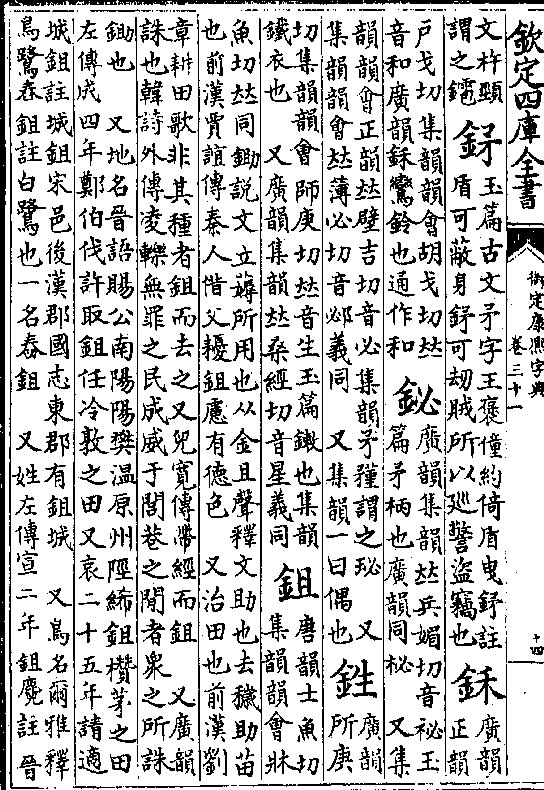 欽定四庫全書
御定康熙字典
卷三十一
十四
文杵頸
謂之
𨥨
玉篇古文矛字王褒僮約倚盾曳𨥨註
盾可蔽身𨥨可刼賊所以巡警盜竊也
鉌
廣韻
正韻
戸戈切集韻韻會胡戈切𠀤
音和廣韻鉌鸞鈴也通作和
鉍
廣韻集韻𠀤兵媚切音祕玉
篇矛柄也廣韻同柲 又集
韻韻會正韻𠀤壁吉切音必集韻矛矜謂之珌 又
集韻韻會𠀤薄必切音邲義同 又集韻一曰偶也
鉎
廣韻
所庚
切集韻韻會師庚切𠀤音生玉篇鏉也集韻
鐵衣也 又廣韻集韻𠀤桑經切音星義同
鉏
唐韻士魚切
集韻韻會牀
魚切𠀤同鋤說文立薅所用也从金且聲釋文助也去穢助苗
也前漢賈誼傳秦人借父耰鉏慮有德色 又治田也前漢劉
章耕田歌非其種者鉏而去之又兒寬傳帶經而鉏 又廣韻
誅也韓詩外傳凌轢無罪之民成威于閭巷之閒者衆之所誅
鋤也 又地名晉語賜公南陽陽樊温原州陘絺鉏欑茅之田
左傳成四年鄭伯伐許取鉏任冷敦之田又哀二十五年請適
城鉏註城鉏宋邑後漢郡國志東郡有鉏城 又鳥名爾雅釋
鳥鷺舂鉏註白鷺也一名舂鉏 又姓左傳宣二年鉏麑註晉